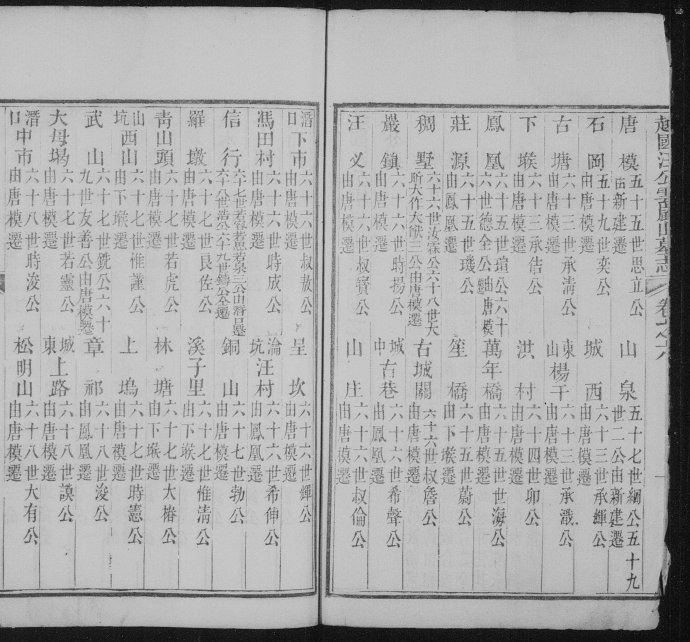 唐模 五十五世思立公由新建遷 山泉 五十七世綱公五十九世二公由新建遷
石岡 五十九世奕公由唐模遷 城西 六十三世承輝公由唐模遷
古塘 六十三世承清公由唐模遷 東山楊干 六十三世承溅公由唐模遷
下堠 六十三承佶公由唐模遷 洪村 六十四世卯公由唐模遷
鳳凰 六十五世瑄公六十六世德全公由唐模遷 萬年橋 六十五世世海公由唐模遷
莊源 六十五世璣公由鳳凰遷 笙橋 六十五世蔚公由下堠遷
稠墅 六十六世公六十八世大斯大作大三公由唐模遷 古城關 六十六世叔詹公由唐模遷
巖鎮 六十六世時揚公由唐模遷 城中右巷 六十六世希聲公由鳳凰遷
汪义 六十六世叔賓公由唐模遷 山庄 六十六世叔倫公由唐模遷
潛口下市 六十六世叔敖公由唐模遷 呈坎 六十六世輝公由唐模遷
馮田村 六十六世時成公由唐模遷 淪坑汪村 六十六世希伸公由鳳凰遷
信行 六十七世公由潛口遷六十八世公六十九世公遷 銅山 六十七世勃公由唐模遷
羅墩 六十七世良佐公由唐模遷 溪子里 六十七世惟清公由下堠遷
靑山頭 六十七世若虎公由唐模遷 林塘 六十七世大椿公由下堠遷
山坑西山 六十七世惟謹公由下堠遷 上塢 六十七世時憲公由唐模遷
武山 六十七世銑公六十九世友善公由唐模遷 章祁 六十八世浚公由鳳凰遷
大母堨 六十七世若靈公由唐模遷 城東上路 六十八世謨公由唐模遷
潛口中市 六十八世時浚公由唐模遷 松明山 六十八世大有公由唐模遷
越國汪公墓志 卷之六